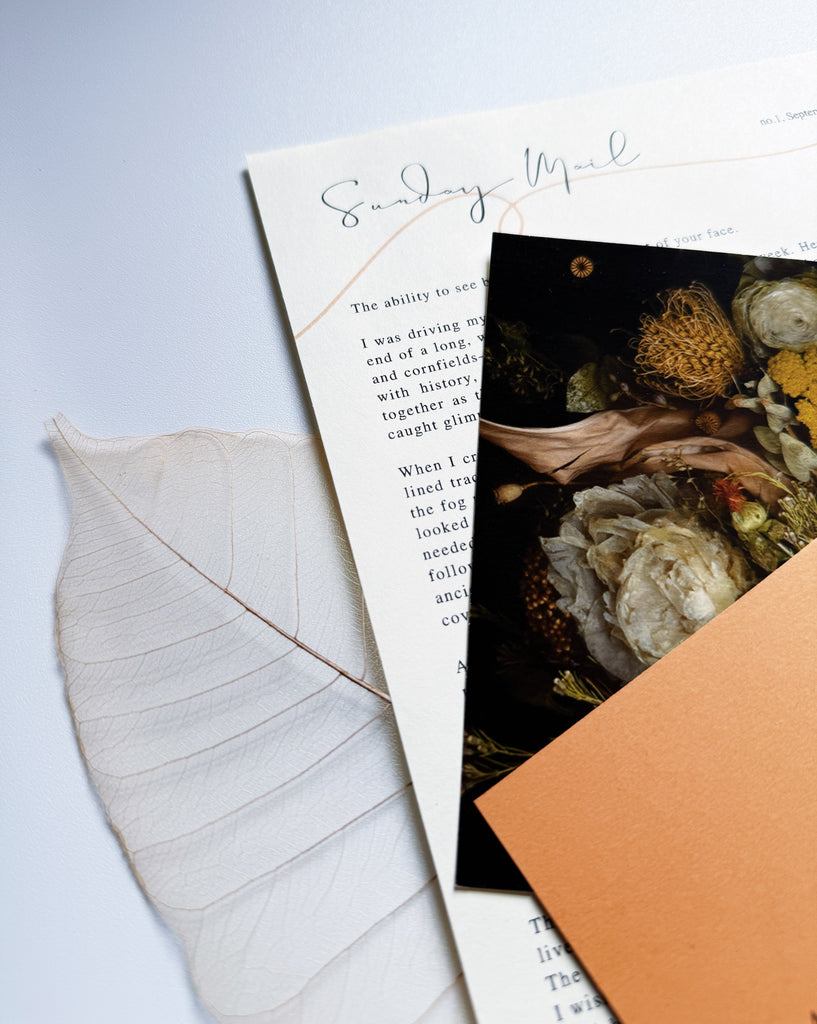 Sunday Mail
no.1, Septem
The ability to see b of your face.
I was driving my eek. He
end of a long, w
and cornfields–
with history,
together as t
caught glimp
When I cr
lined trac
the fog
looked
needed
follow
anci
cov
A
Th
live
The
I wis